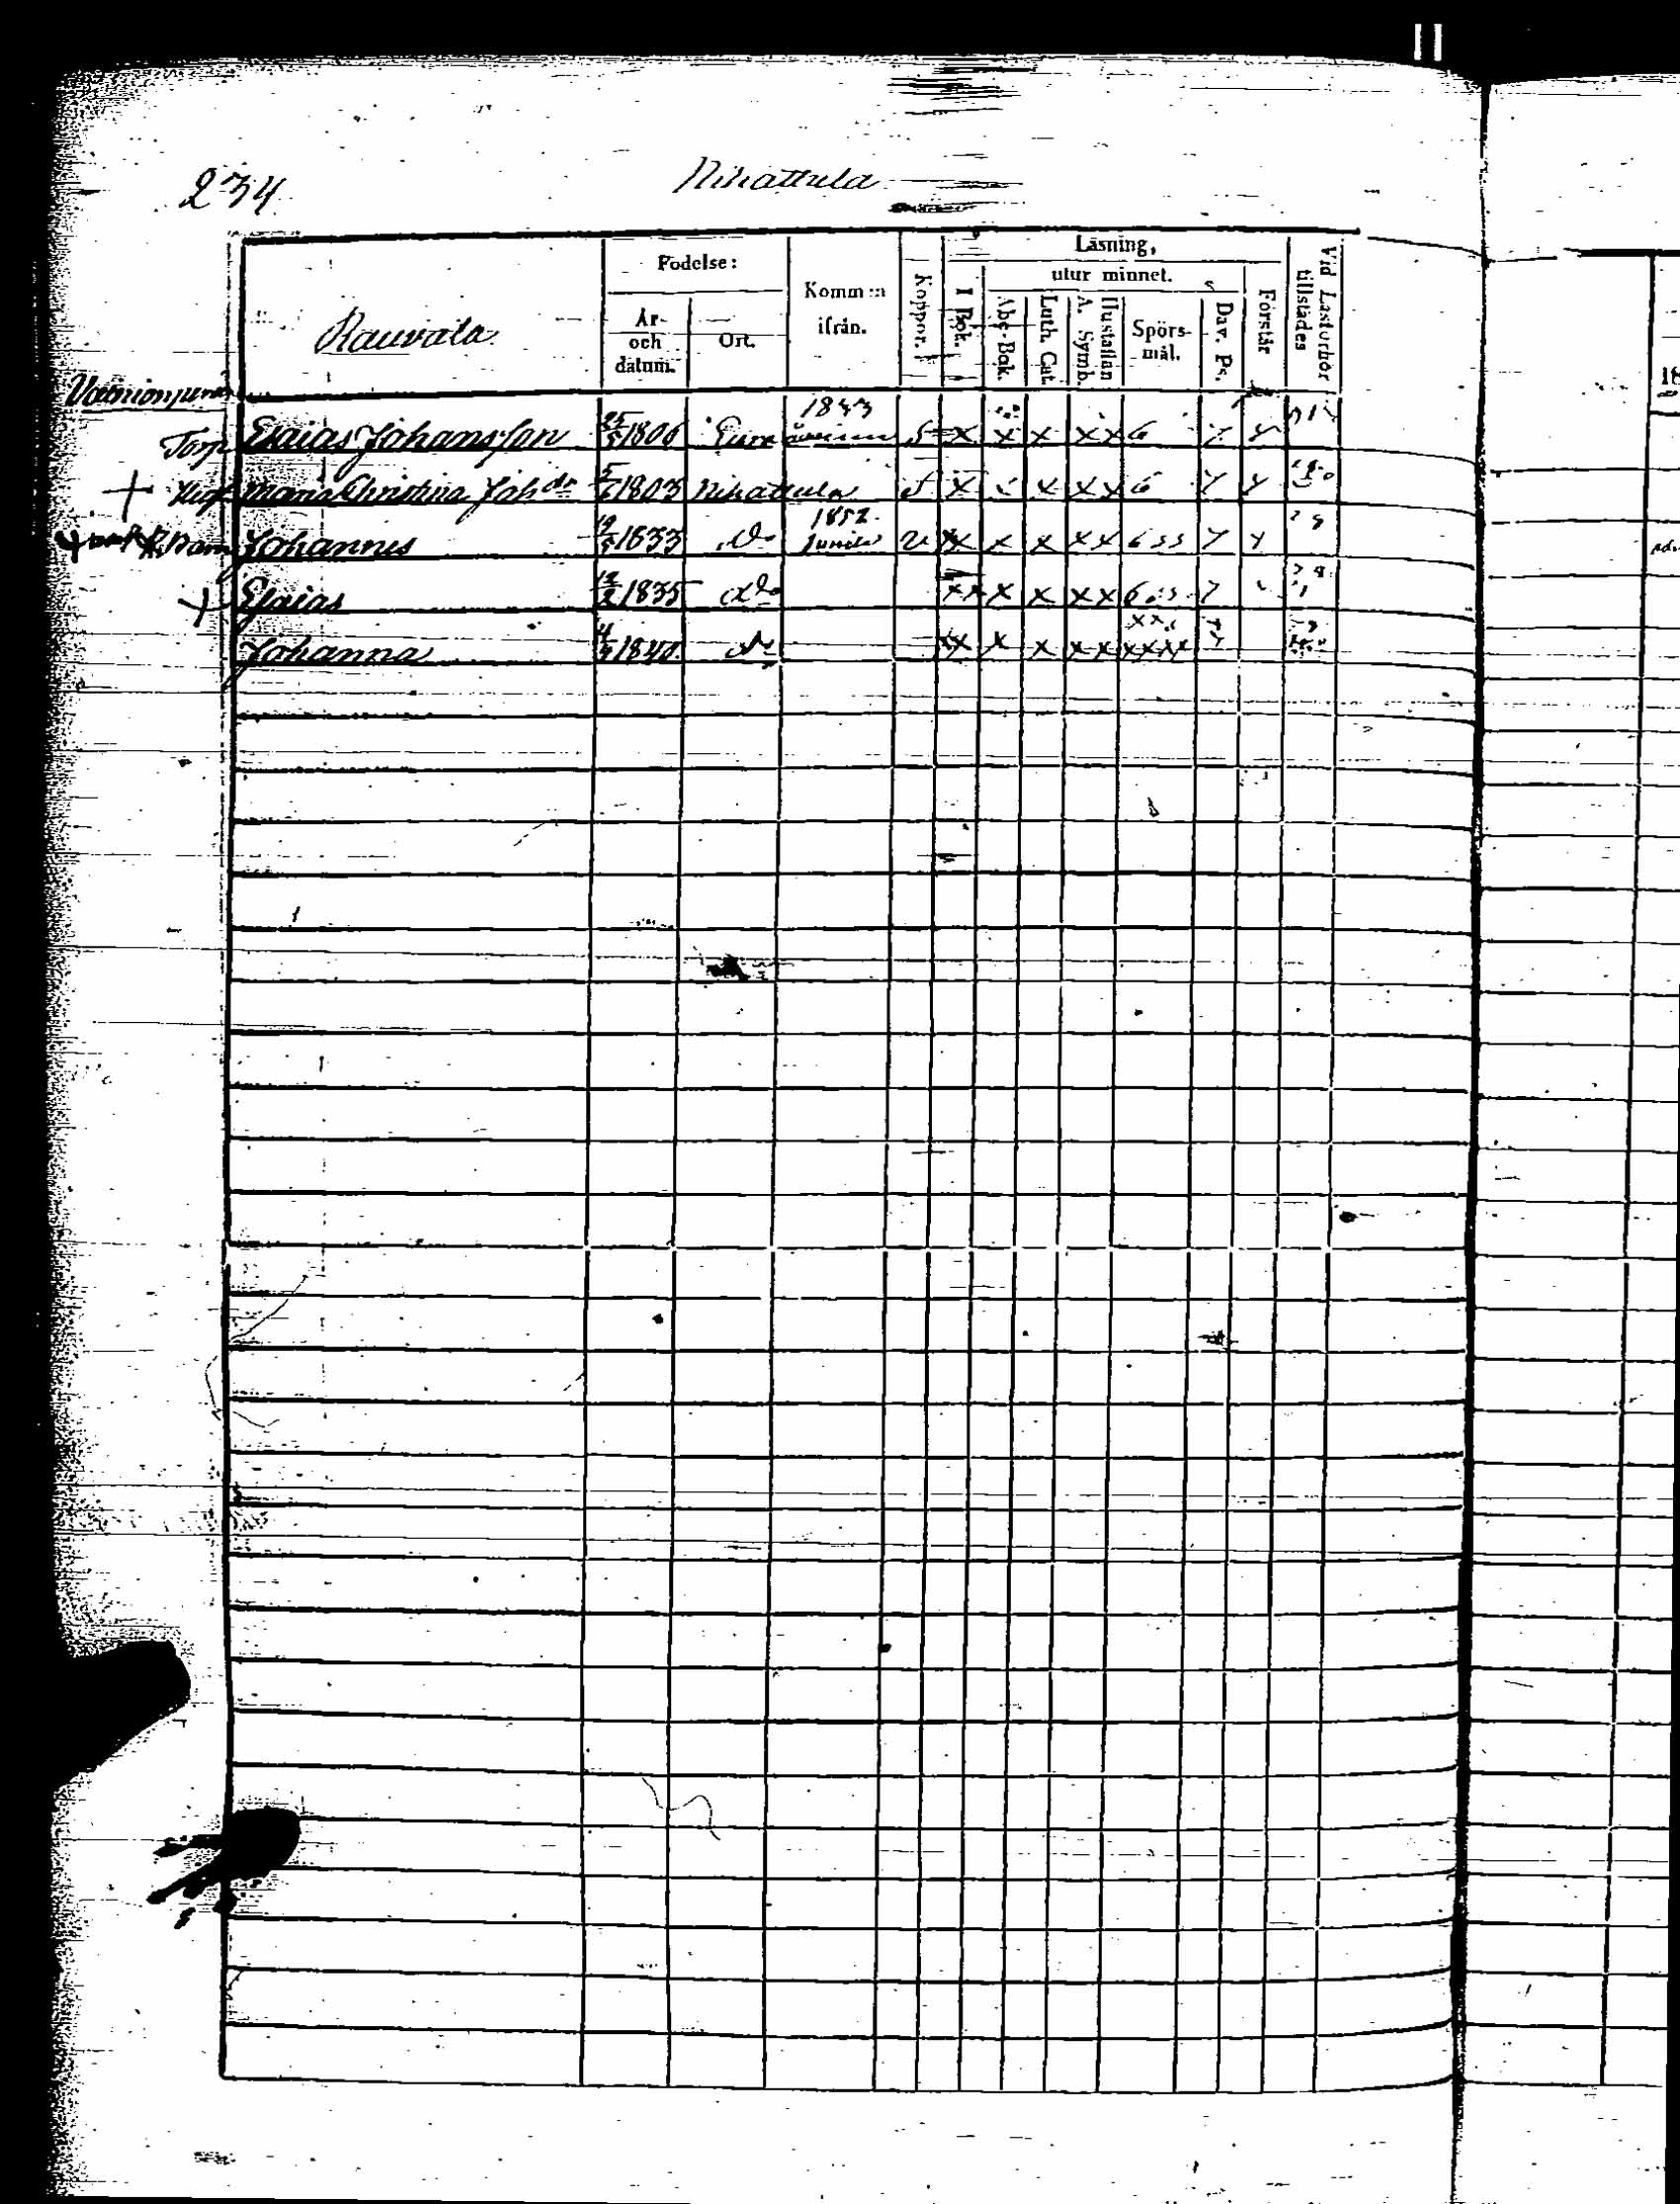 234 Nihattula
Rauvala
Födelse:
År och datum.
Ort.
Kommen ifrån.
Koppor.
Läsning,
I Bok.
utur minnet.
Abc-Bok.
Luth. Cat.
Hustaflan A. Symb.
Spörsmål.
Dav. Ps.
Förstår
Vid Läsförhör tillstädes
18
Torp Esaias Johansson 25/5 1806 Eura 1833 S x x x x x 6 7 y
+ Hust Maria Christina Joh dr 5/6 1803 Nihattula S x x x x x 6 7 y
Johannes 19/5 1833 do 1852 Junila v x x x x x 6 7 y
+ Esaias 12/2 1835 do x x x x x x 6 7
Johanna 4/7 1840 do x x x x x x x x x x x